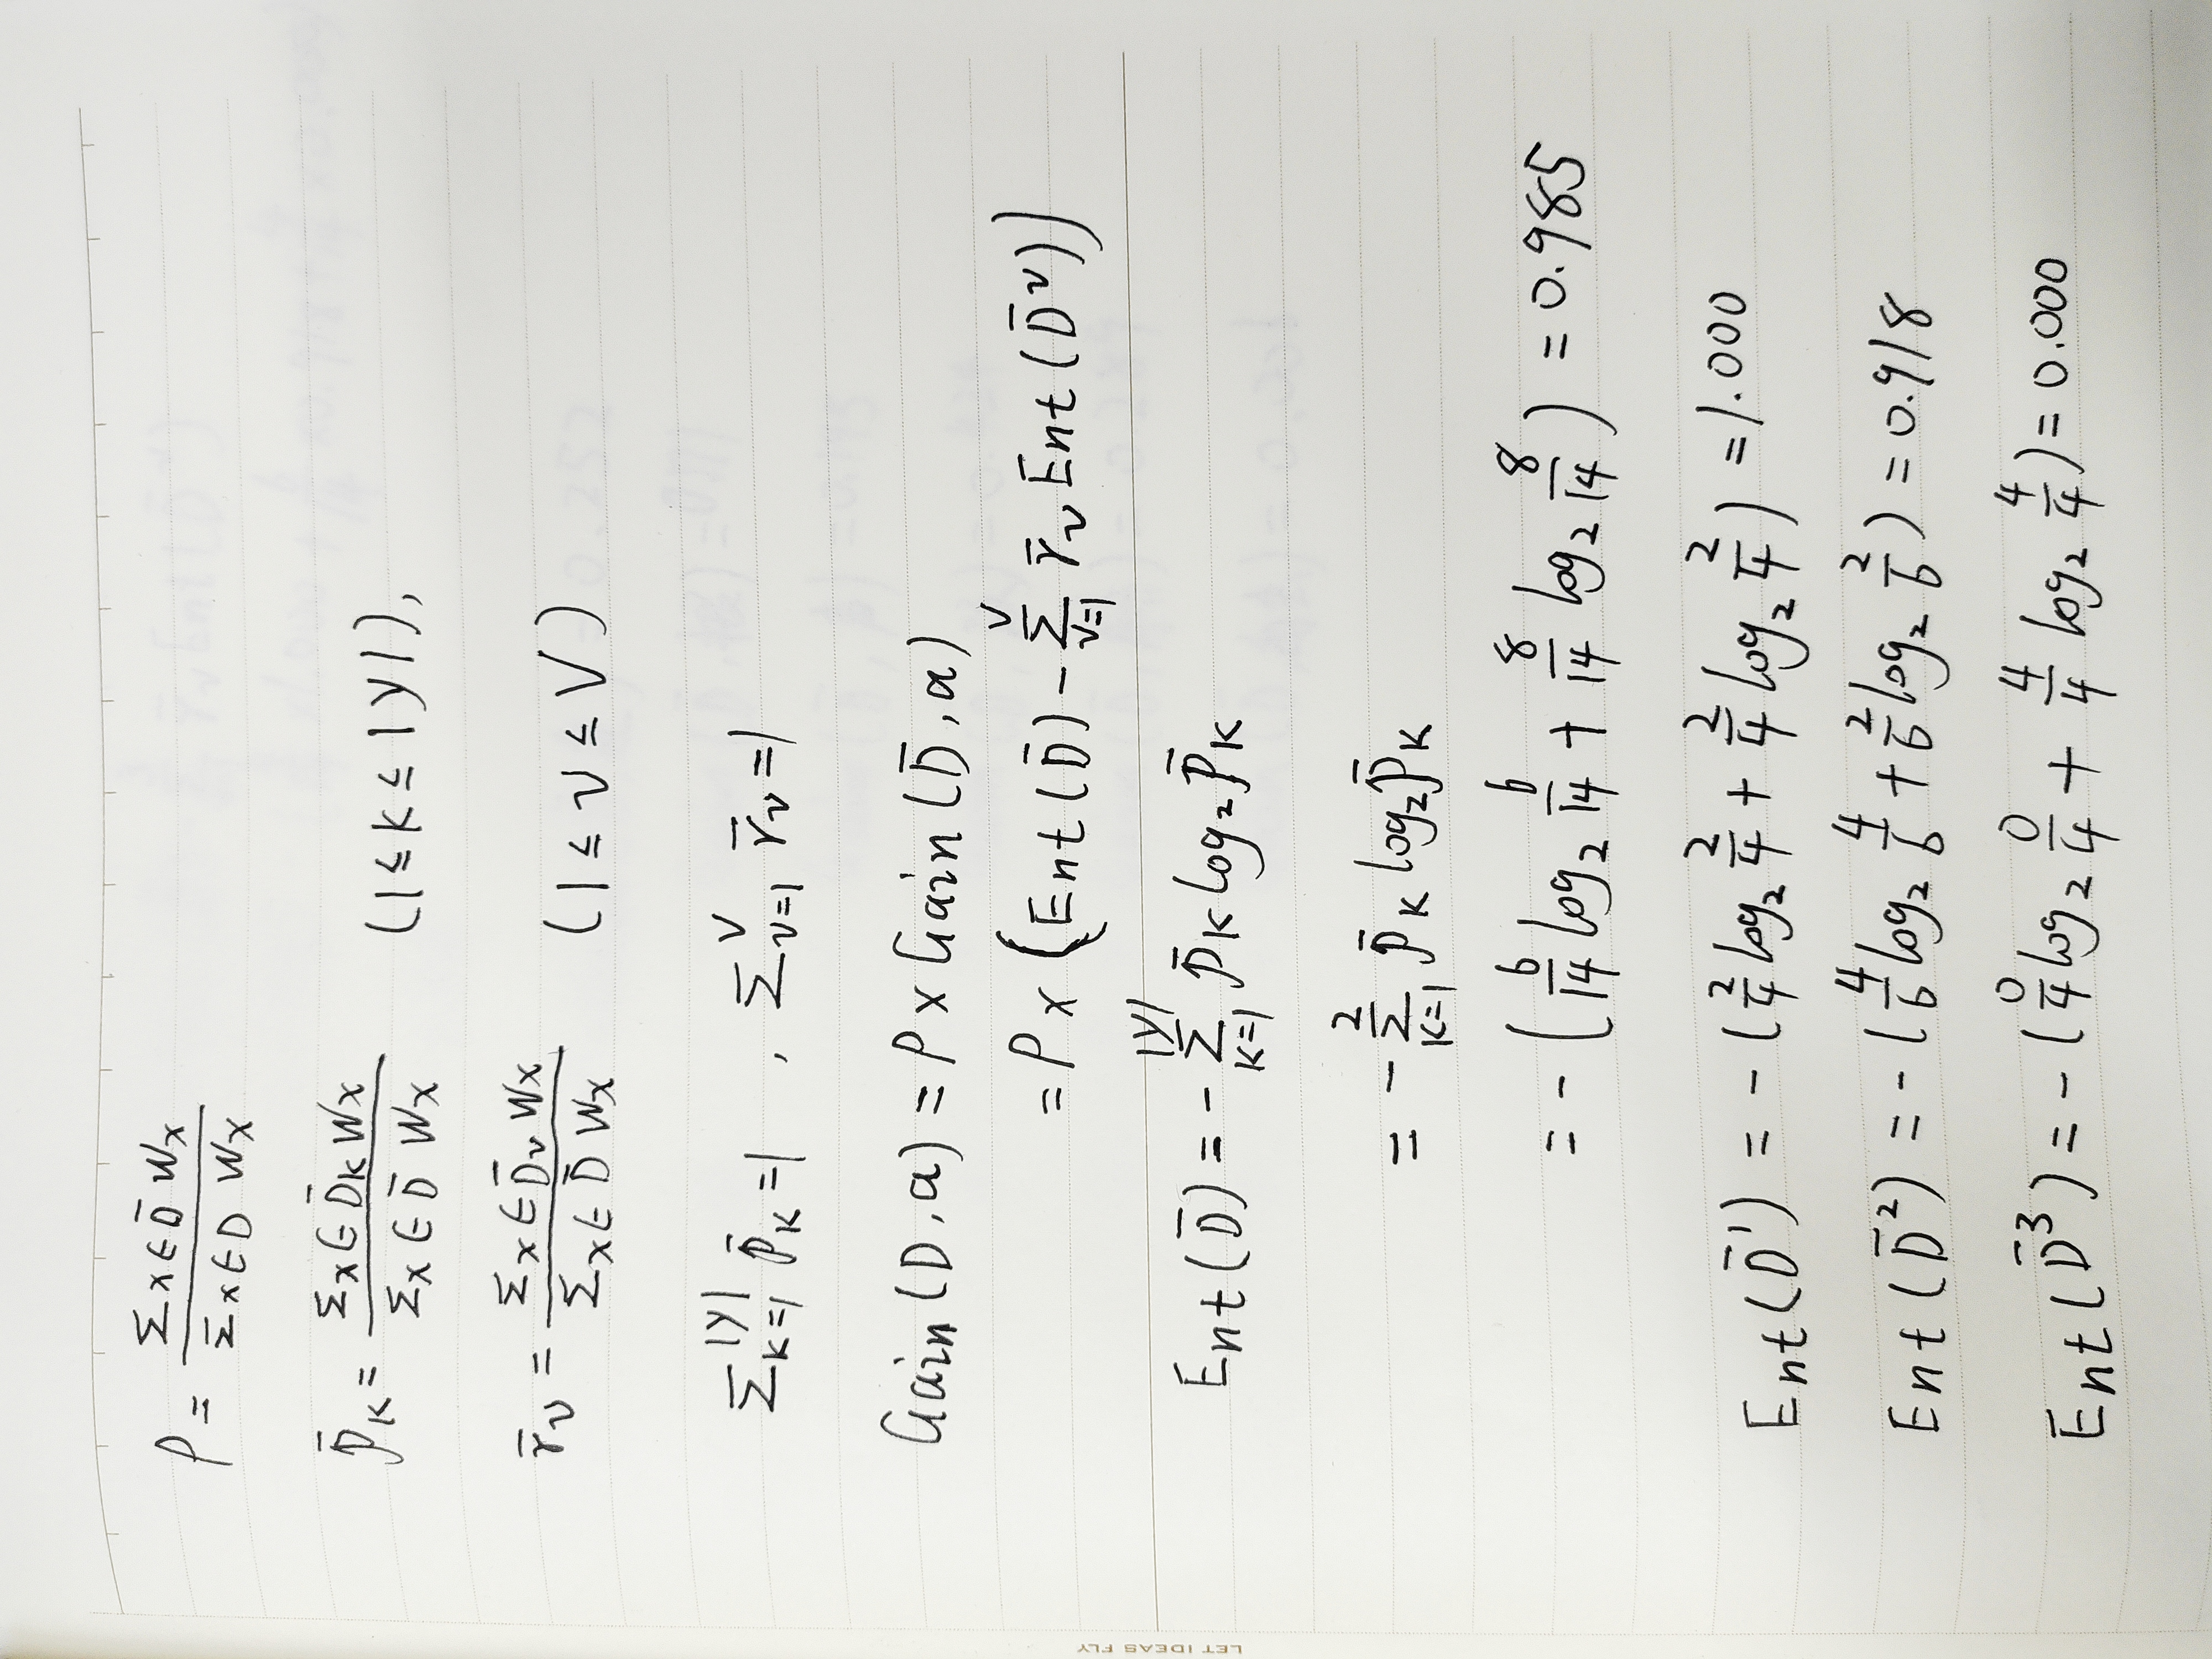 ρ = Σx∈D̄ Wx / Σx∈D Wx
p̄K = Σx∈D̄K Wx / Σx∈D̄ Wx (1≤K≤|y|),
r̄ν = Σx∈D̄ν Wx / Σx∈D̄ Wx (1≤ν≤V)
Σ_{K=1}^{|y|} p̄K=1 , Σ_{ν=1}^{V} r̄ν=1
Gain(D,a) = ρ×Gain(D̄,a)
= ρ×(Ent(D̄)-Σ_{ν=1}^{V} r̄ν Ent(D̄^ν))
Ent(D̄) = -Σ_{K=1}^{|y|} p̄K log₂ p̄K
= -Σ_{K=1}^{2} p̄K log₂ p̄K
= -(6/14 log₂ 6/14 + 8/14 log₂ 8/14) = 0.985
Ent(D̄¹) = -(2/4 log₂ 2/4 + 2/4 log₂ 2/4) = 1.000
Ent(D̄²) = -(4/6 log₂ 4/6 + 2/6 log₂ 2/6) = 0.918
Ent(D̄³) = -(0/4 log₂ 0/4 + 4/4 log₂ 4/4) = 0.000
LET IDEAS FLY